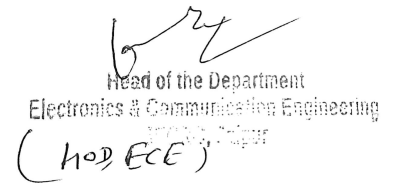 Head of the Department
Electronics & Communication Engineering
Jaipur
( HOD, ECE )